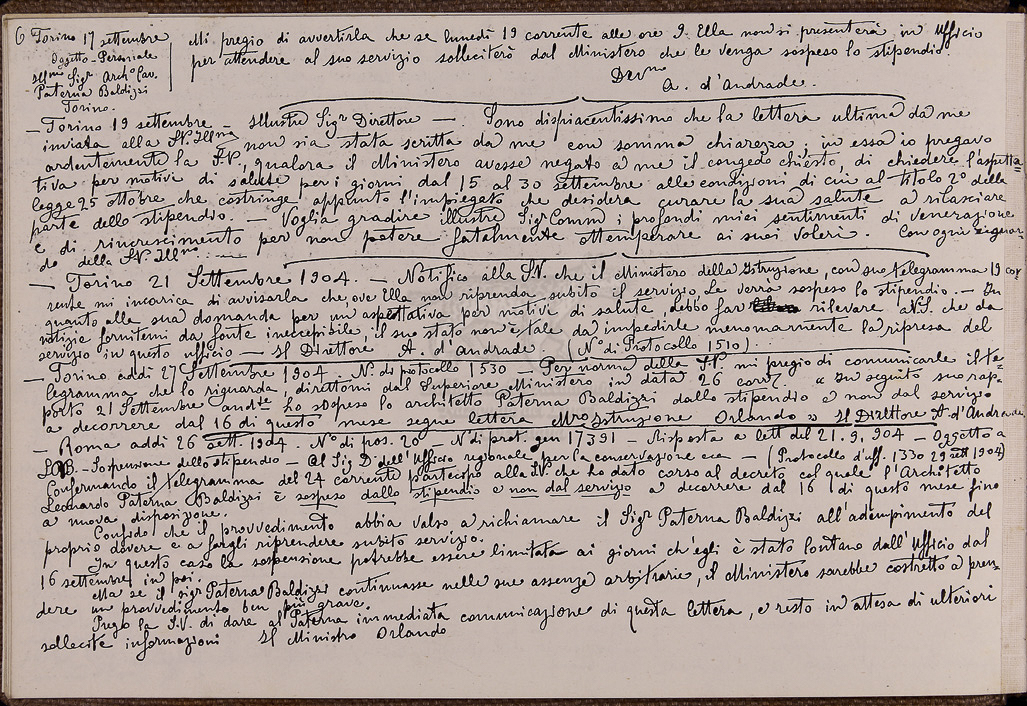 6 Torino 17 settembre
Oggetto - Personale
Ill.mo Sigr Archo Cav.
Paterna Baldizzi
Torino.
Mi pregio di avvertirla che se lunedì 19 corrente alle ore 9. Ella non si presenterà in Ufficio
per attendere al suo servizio solleciterò dal Ministero che le venga sospeso lo stipendio.
Devmo
A. d'Andrade.
- Torino 19 settembre - Illustre Sigr Direttore - Sono dispiacentissimo che la lettera ultima da me
inviata alla S.V. Illma non sia stata scritta da me con somma chiarezza; in essa io pregavo
ardentemente la S.V., qualora il Ministero avesse negato a me il congedo chiesto, di chiedere l'aspetta-
tiva per motivi di salute per i giorni dal 15 al 30 settembre alle condizioni di cui al titolo 2º della
legge 25 ottobre che costringe appunto l'impiegato che desidera curare la sua salute a rilasciare
parte dello stipendio. - Voglia gradire illustre Sigr Comm i profondi miei sentimenti di venerazione
e di rincrescimento per non potere fatalmente ottemperare ai suoi voleri. Con ogni riguar-
do della S.V. Illma ...
- Torino 21 Settembre 1904. - Notifico alla S.V. che il Ministero della Istruzione, con suo telegramma 19 cor
rente mi incarica di avvisarla che, ove Ella non riprenda subito il servizio, Le verrà sospeso lo stipendio. - In
quanto alla sua domanda per un'aspettativa per motivi di salute, debbo far rilevare a V.S. che da
notizie fornitemi da fonte ineccepibile, il suo stato non è tale da impedirle menomamente la ripresa del
servizio in questo ufficio - Il Direttore A. d'Andrade (Nº di Protocollo 1510)
- Torino addì 27 Settembre 1904 - Nº di protocollo 1530 - Per norma della S.V. mi pregio di comunicarle il te-
legramma che lo riguarda, direttomi dal Superiore Ministero in data 26 corr. "In seguito suo rap-
porto 21 Settembre andte ho sospeso lo architetto Paterna Baldizzi dallo stipendio e non dal servizio
a decorrere dal 16 di questo mese segue lettera Mro Istruzione Orlando" Il Direttore A. d'Andrade
- Roma addì 26 sett. 1904 - Nº di pos. 20 - Nº di prot. gen 17391 - Risposta a lett del 21. 9. 904 - Oggetto a
P.B. - Sospensione dello stipendio - Al Sig Dr dell'Ufficio regionale per la conservazione ecc - (Protocollo d'uff. 1330 29 sett 1904)
Confermando il telegramma del 24 corrente partecipo alla S.V. che ho dato corso al decreto col quale l'Architetto
Leonardo Paterna Baldizzi è sospeso dallo stipendio e non dal servizio a decorrere dal 16 di questo mese fino
a nuova disposizione.
Confido che il provvedimento abbia valso a richiamare il Sigr Paterna Baldizzi all'adempimento del
proprio dovere e a fargli riprendere subito servizio.
In questo caso la sospensione potrebbe essere limitata ai giorni ch'egli è stato lontano dall'Ufficio dal
16 settembre in poi.
Ma se il sigr Paterna Baldizzi continuasse nelle sue assenze arbitrarie, il Ministero sarebbe costretto a pren-
dere un provvedimento ben più grave.
Prego la S.V. di dare al Paterna immediata comunicazione di questa lettera, e resto in attesa di ulteriori
sollecite informazioni Il Ministro Orlando